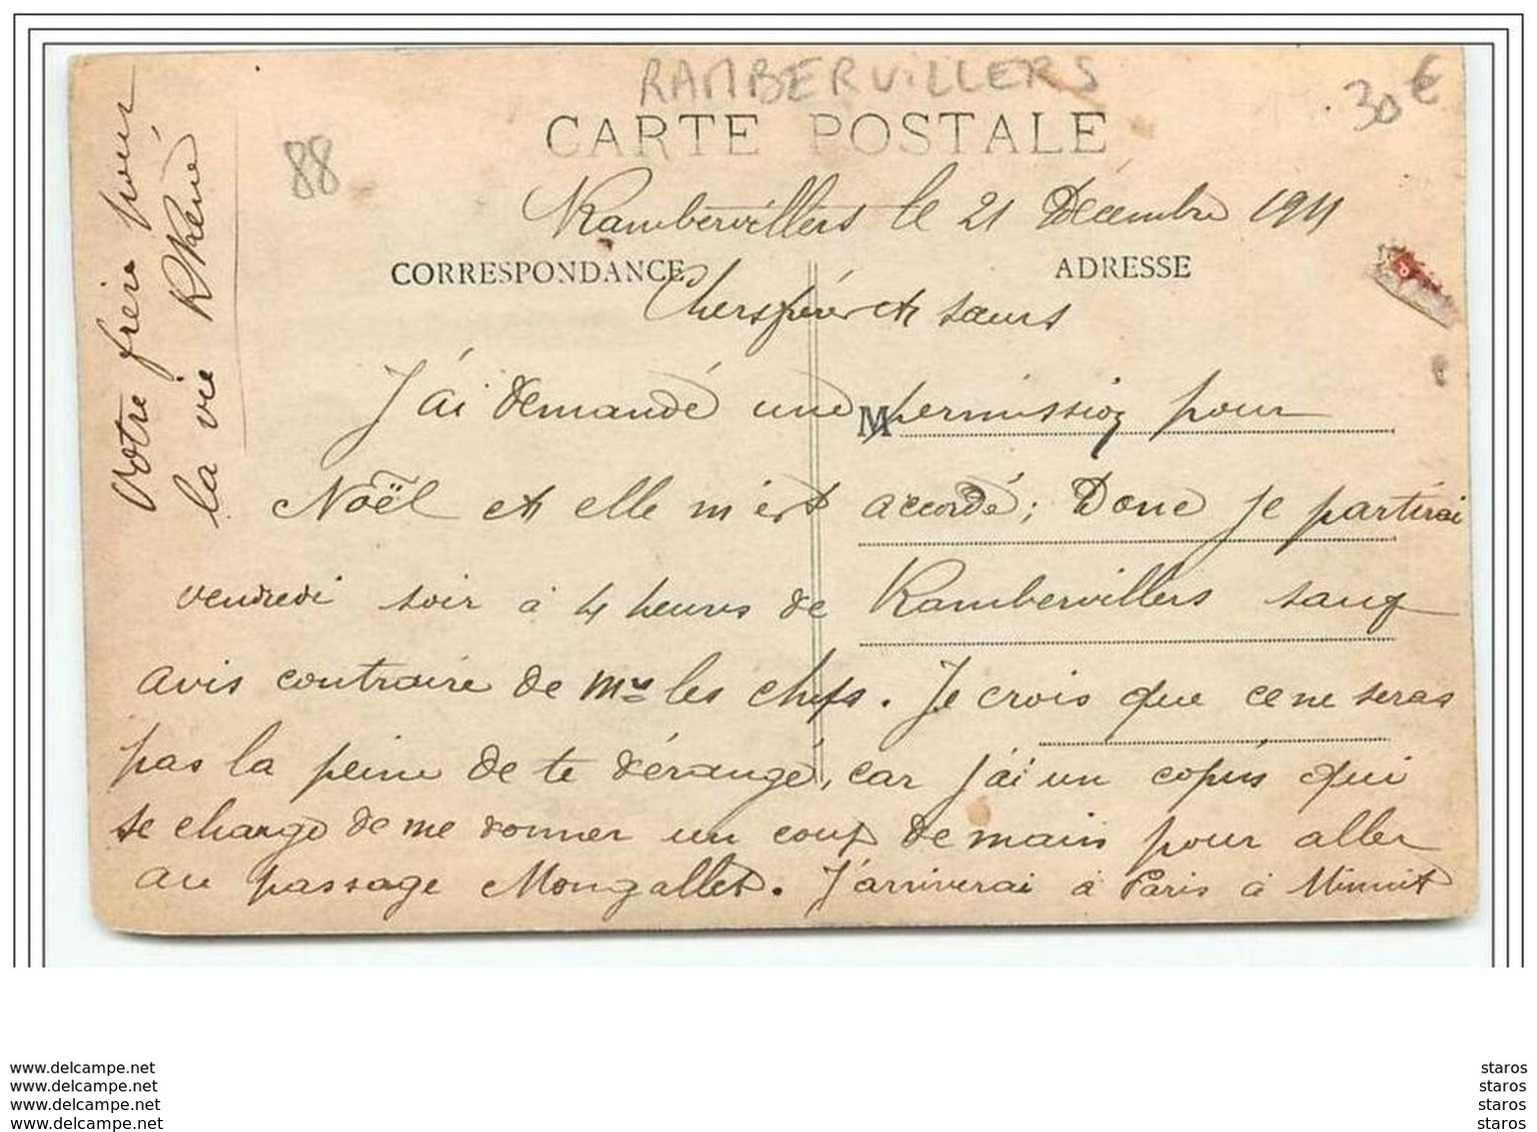 RAMBERVILLERS
30 €
88
CARTE POSTALE
Rambervillers le 21 Décembre 1911
CORRESPONDANCE
ADRESSE
Chers frère et sœurs
M
J'ai demandé une permission pour
Noël et elle m'est accordé; Donc je partirai
vendredi soir à 4 heures de Rambervillers sauf
avis contraire de Mrs les chefs. Je crois que ce ne seras
pas la peine de te dérangé, car j'ai un copins qui
se charge de me donner un coup de main pour aller
au passage Mongallet. J'arriverai à Paris à Minuit
Votre frère pour
la vie René
www.delcampe.net
www.delcampe.net
www.delcampe.net
www.delcampe.net
staros
staros
staros
staros